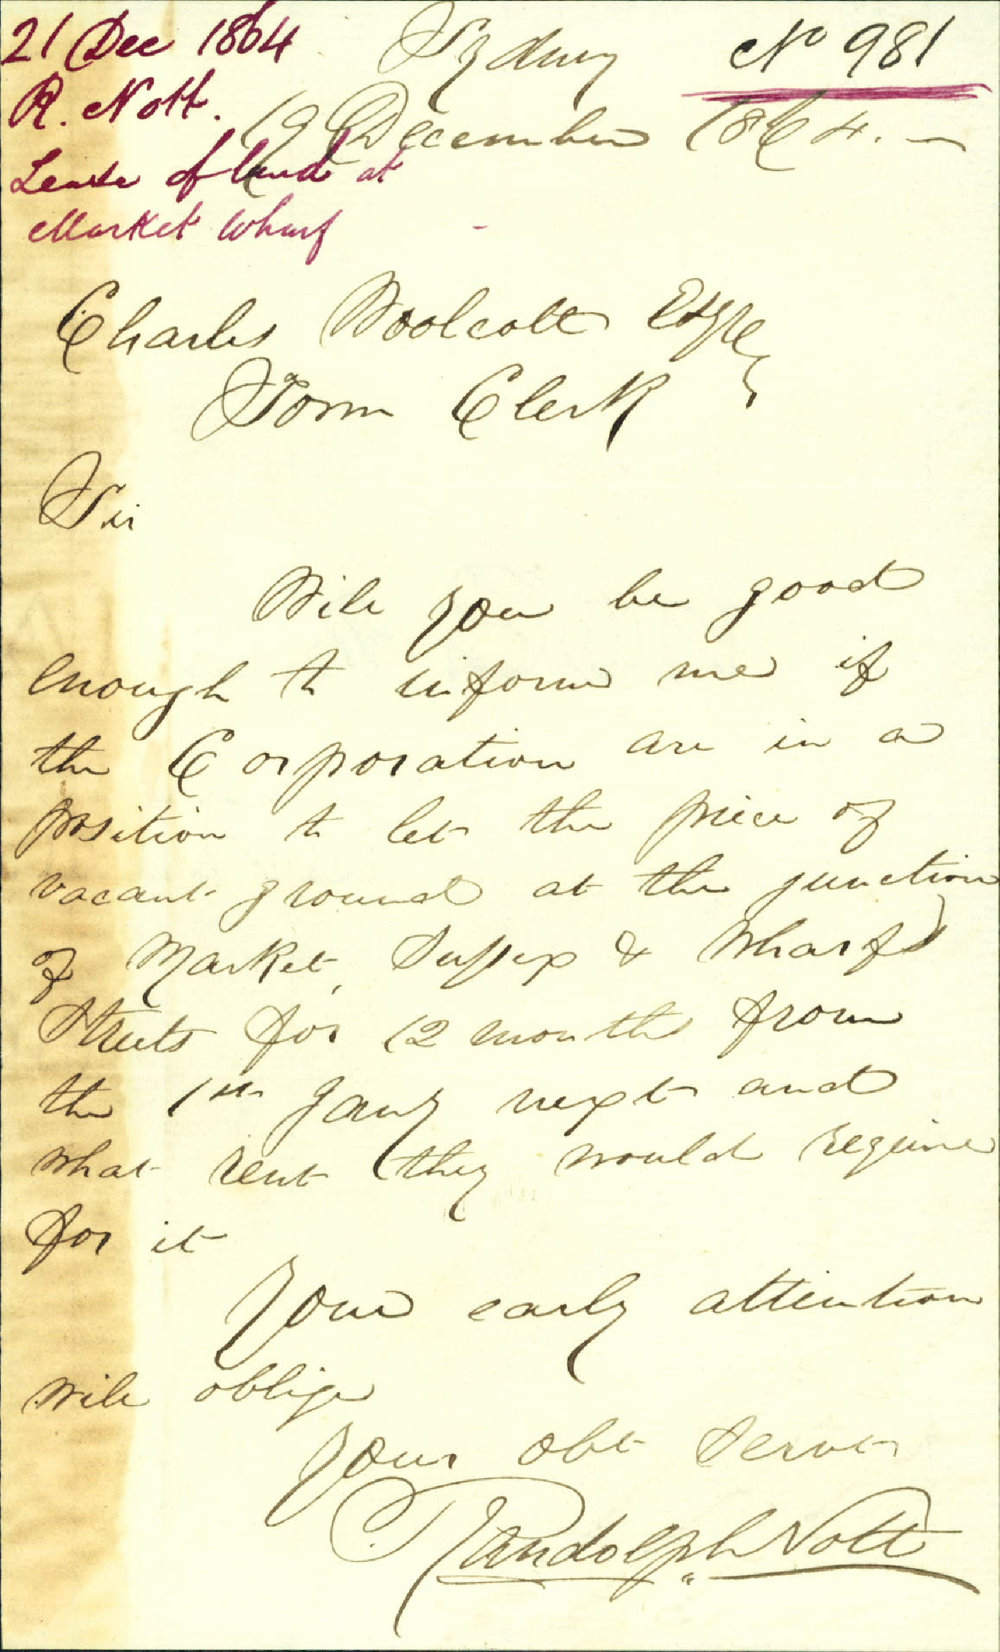 21 Dec 1864
R. Nott.
Lease of land at
Market Wharf
No 981
Sydney
19 December 1864. —
Charles Woolcott Esqre
Town Clerk
Sir
Will you be good
enough to inform me if
the Corporation are in a
position to let the piece of
vacant ground at the junction
of Market, Sussex & Wharf
Streets for 12 months from
the 1st Jany next and
what rent they would require
for it
Your early attention
will oblige
Your obt Servt
Randolph Nott